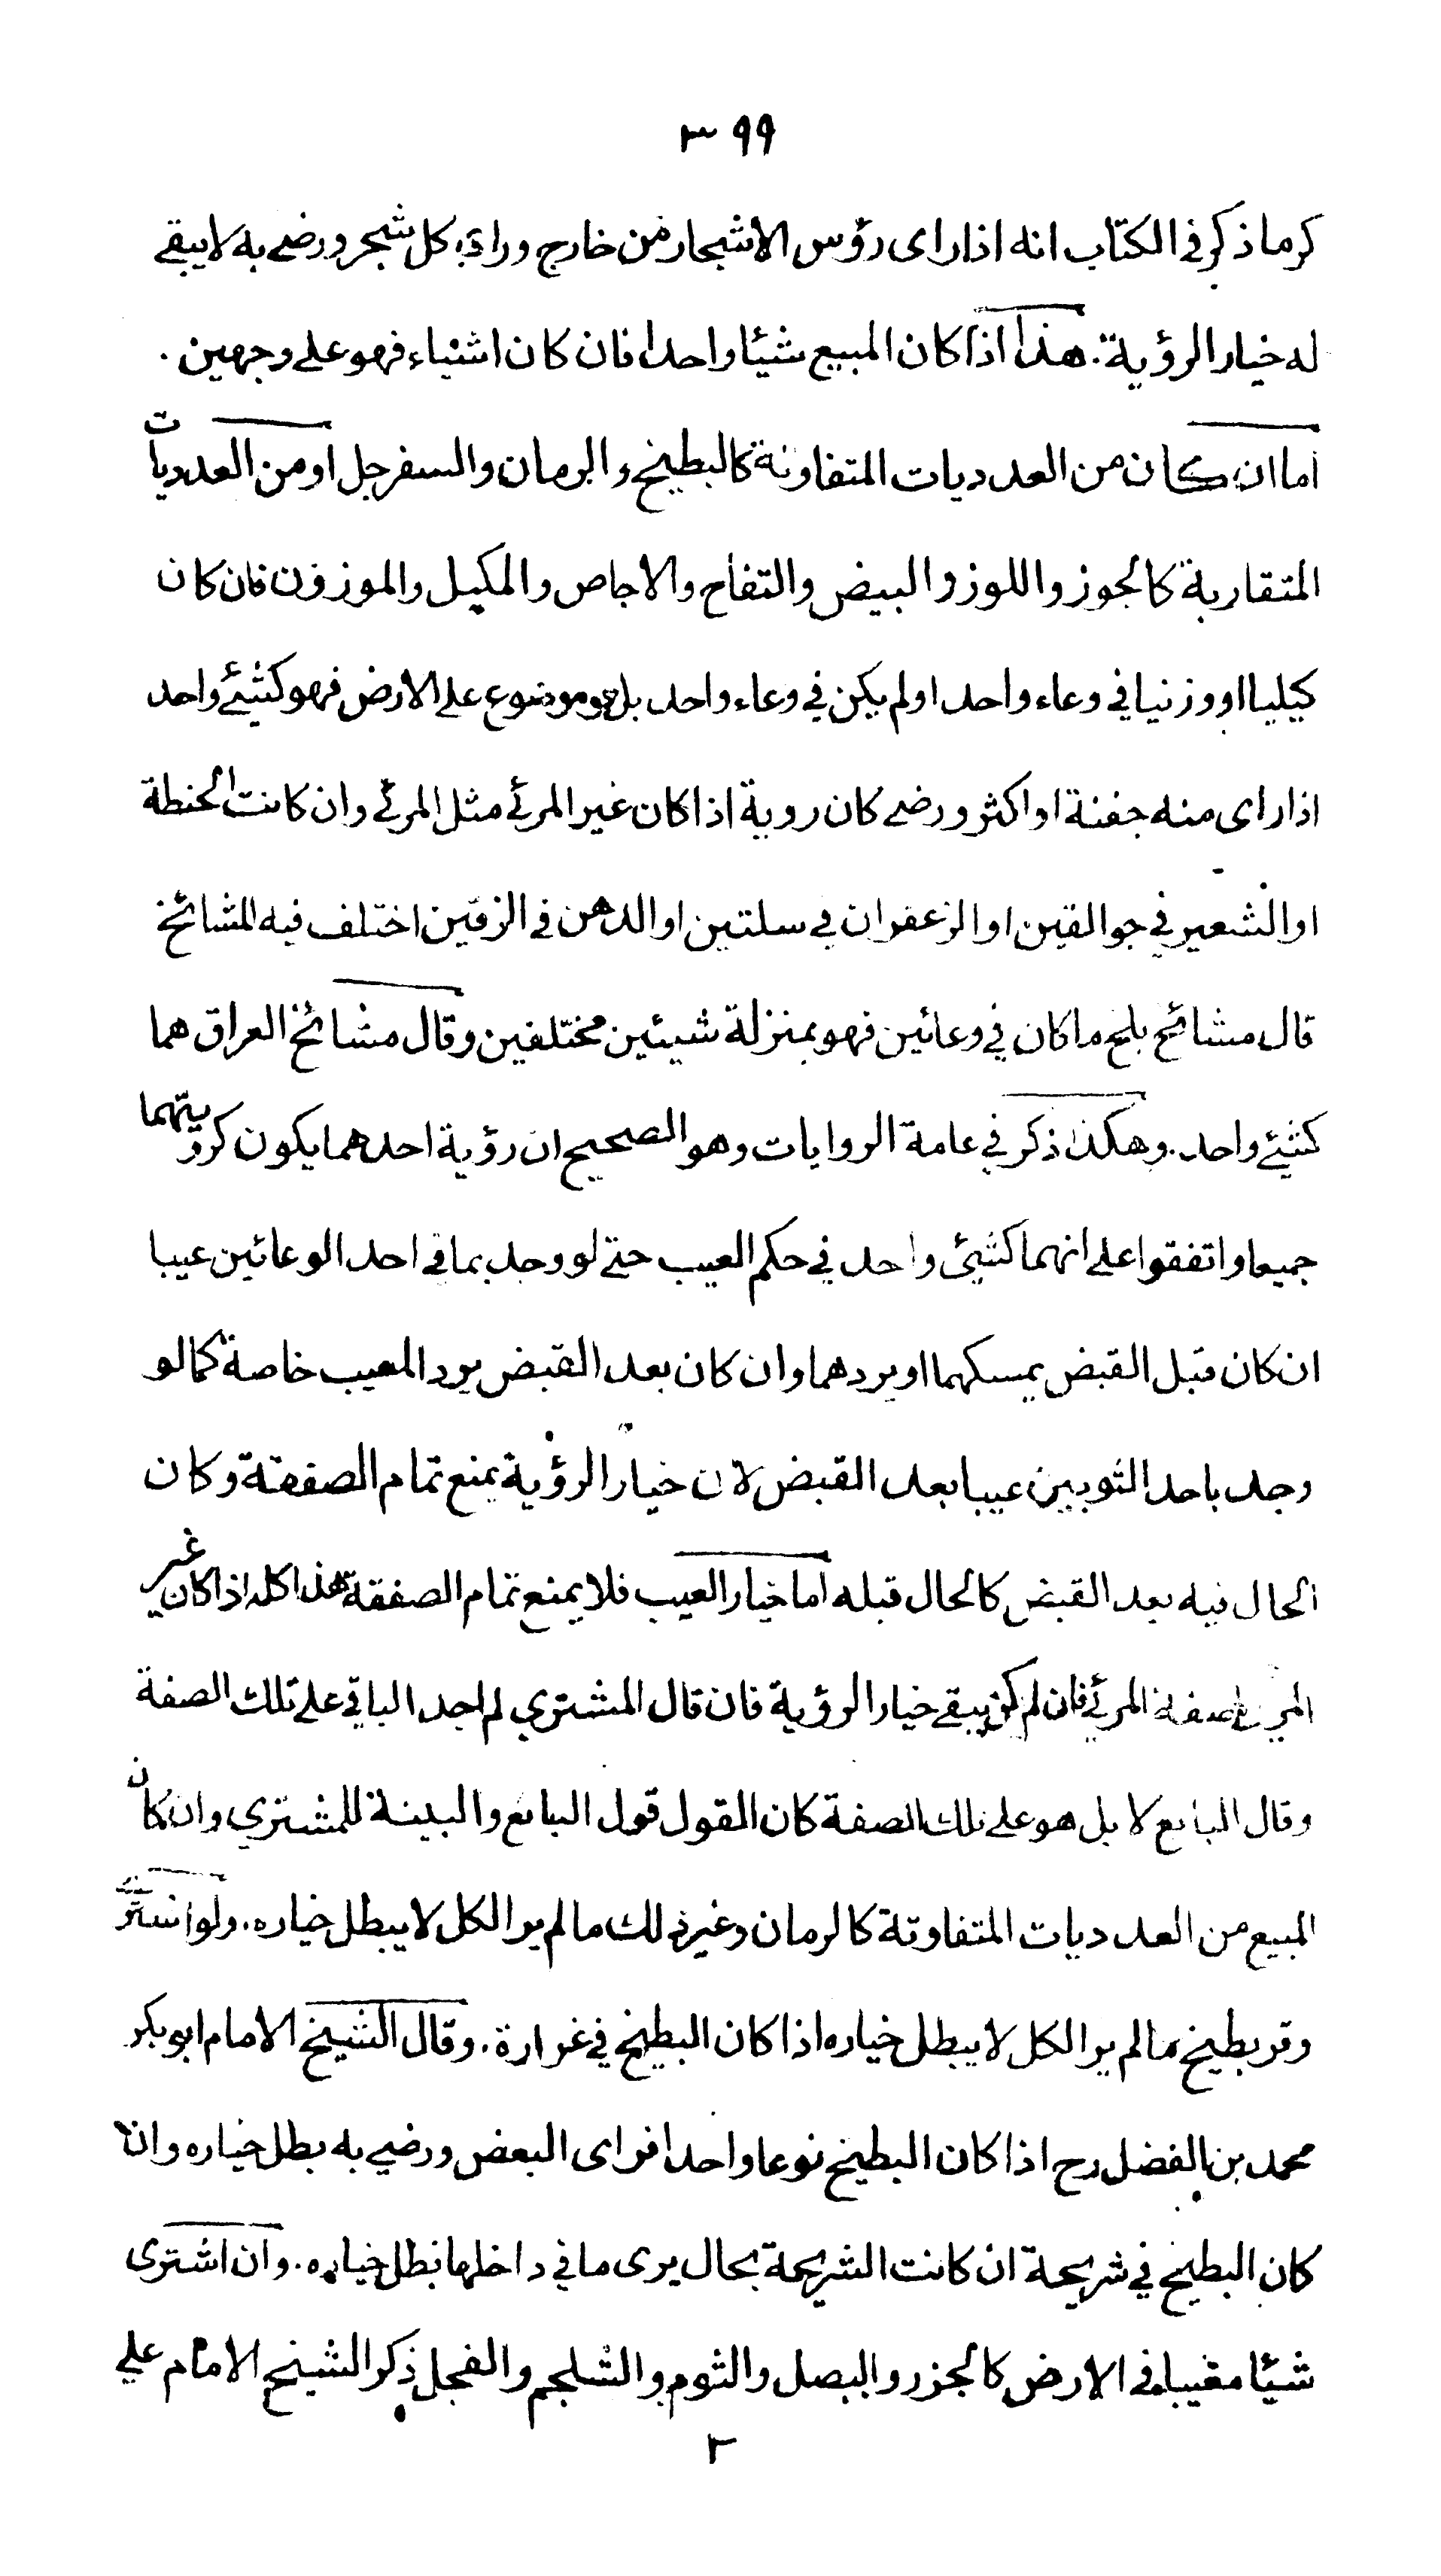 ٣٩٩
كرما ذكر في الكتاب انه اذا راى رؤس الاشجار من خارج وراى كل شجر ورضي به لا يبقى
له خيار الرؤية. هذا اذا كان المبيع شيئا واحدا فان كان اشياء فهو على وجهين.
اما ان كان من العدديات المتفاوتة كالبطيخ والرمان والسفرجل او من العدديات
المتقاربة كالجوز واللوز والبيض والتفاح والاجاص والمكيل والموزون فان كان
كيليا او وزنيا في وعاء واحد او لم يكن في وعاء واحد بل هو موضوع على الارض فهو كشيئ واحد
اذا راى منه جفنة او اكثر ورضى كان روية اذا كان غير المرئي مثل المرئي وان كانت الحنطة
او الشعير في جوالقين او الزعفران في سلتين او الدهن في الزقين اختلف فيه المشائخ
قال مشائخ بلخ ما كان في وعائين فهو بمنزلة شيئين مختلفين وقال مشائخ العراق هما
كشيئ واحد. وهكذا ذكر في عامة الروايات وهو الصحيح ان رؤية احدهما يكون كرؤيتهما
جميعا واتفقوا على انهما كشيئ واحد في حكم العيب حتى لو وجد بما في احد الوعائين عيبا
ان كان قبل القبض يمسكهما او يردهما وان كان بعد القبض يرد المعيب خاصة كما لو
وجد باحد الثوبين عيبا بعد القبض لان خيار الرؤية يمنع تمام الصفقة وكان
الحال فيه بعد القبض كالحال قبله اما خيار العيب فلا يمنع تمام الصفقة هذا كله اذا كان غير
المرئي بصفة المرئي فان لم يكن يبقى خيار الرؤية فان قال المشتري لم اجد الباقي على تلك الصفة
وقال البايع لا بل هو على تلك الصفة كان القول قول البايع والبينة للمشتري وان كان
المبيع من العدديات المتفاوتة كالرمان وغير ذلك ما لم ير الكل لا يبطل خياره. ولو اشترى
وقر بطيخ ما لم ير الكل لا يبطل خياره اذا كان البطيخ في غرارة. وقال الشيخ الامام ابو بكر
محمد بن الفضل رح اذا كان البطيخ نوعا واحدا فراى البعض ورضي به بطل خياره وان
كان البطيخ في شريحة ان كانت الشريحة بحال يرى ما في داخلها بطل خياره. وان اشترى
شيئا مغيبا في الارض كالجزر والبصل والثوم والشلجم والفجل ذكر الشيخ الامام علي